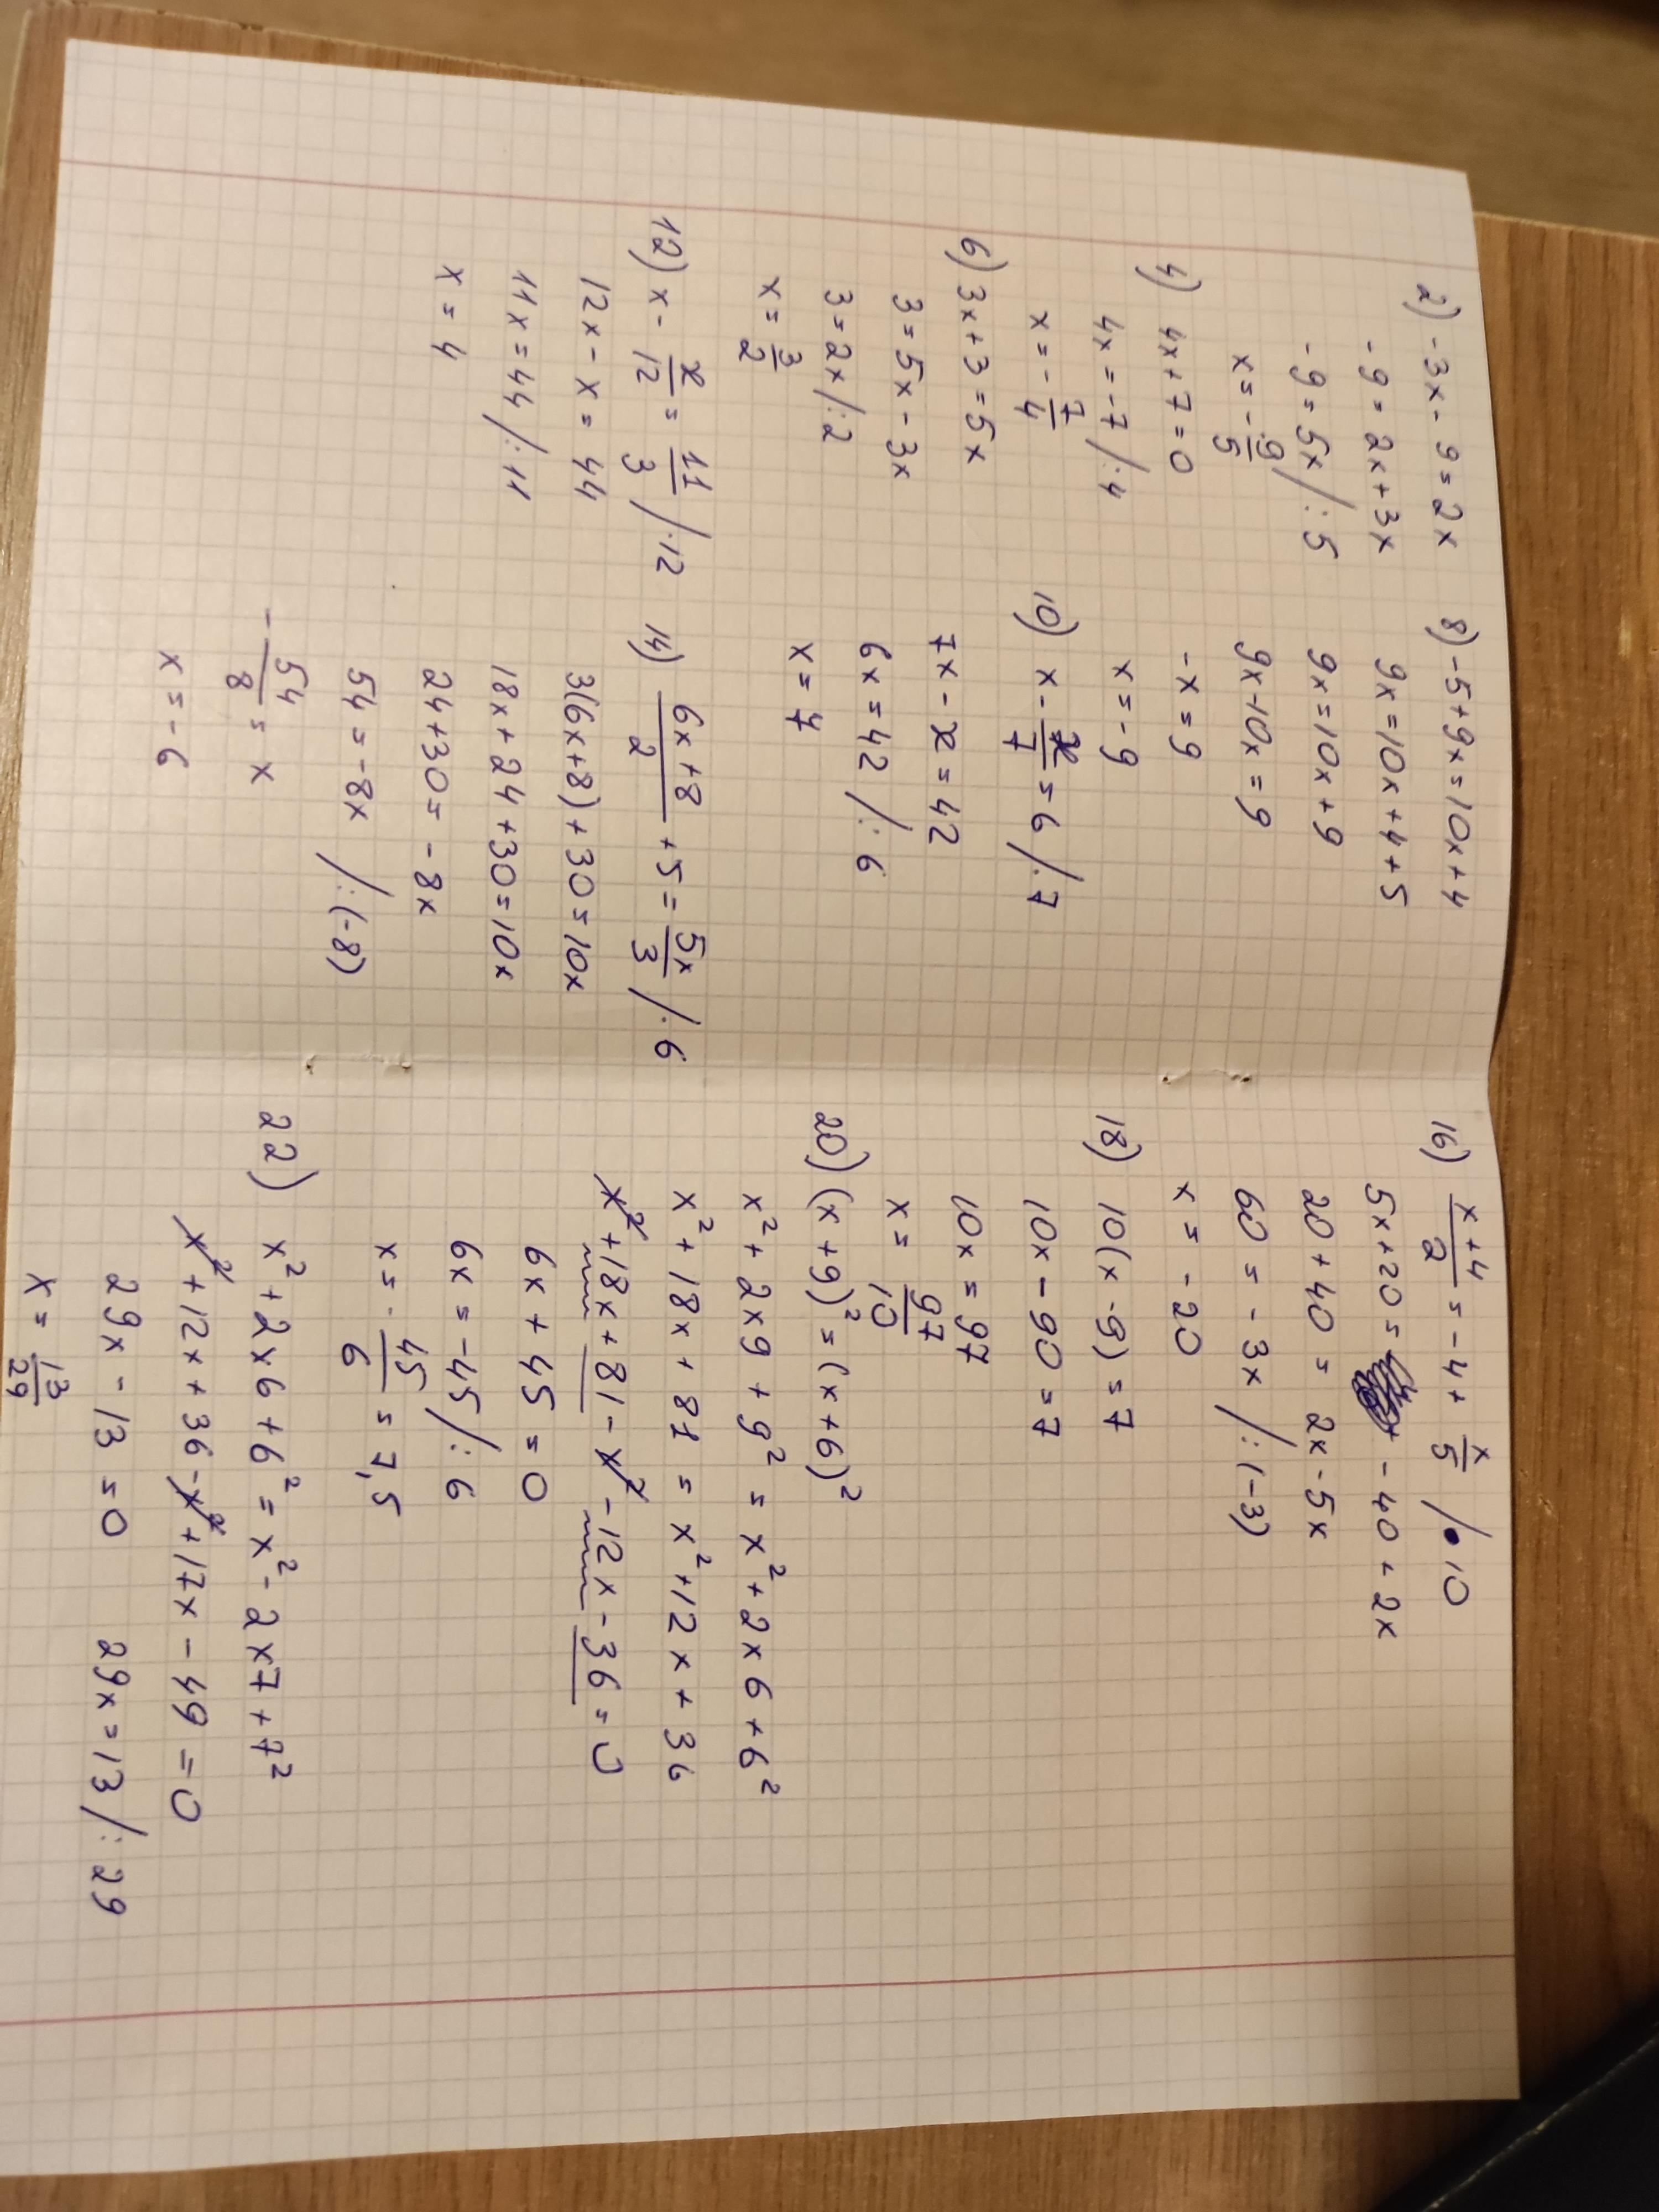 2) -3x - 9 = 2x
-9 = 2x + 3x
-9 = 5x /:5
x = -9/5
4) 4x + 7 = 0
4x = -7 /:4
x = -7/4
6) 3x + 3 = 5x
3 = 5x - 3x
3 = 2x /:2
x = 3/2
12) x - x/12 = 11/3 /·12
12x - x = 44
11x = 44 /:11
x = 4
8) -5 + 9x = 10x + 4
9x = 10x + 4 + 5
9x = 10x + 9
9x - 10x = 9
-x = 9
x = -9
10) x - x/7 = 6 /·7
7x - x = 42
6x = 42 /:6
x = 7
14) (6x + 8)/2 + 5 = 5x/3 /·6
3(6x + 8) + 30 = 10x
18x + 24 + 30 = 10x
24 + 30 = -8x
54 = -8x /:(-8)
-54/8 = x
x = -6
16) (x + 4)/2 = -4 + x/5 /·10
5x + 20 = -40 + 2x
20 + 40 = 2x - 5x
60 = -3x /:(-3)
x = -20
18) 10(x - 9) = 7
10x - 90 = 7
10x = 97
x = 97/10
20) (x + 9)² = (x + 6)²
x² + 2x9 + 9² = x² + 2x6 + 6²
x² + 18x + 81 = x² + 12x + 36
x² + 18x + 81 - x² - 12x - 36 = 0
6x + 45 = 0
6x = -45 /:6
x = -45/6 = 7,5
22) x² + 2x6 + 6² = x² - 2x7 + 7²
x² + 12x + 36 - x² + 17x - 49 = 0
29x - 13 = 0 29x = 13 /:29
x = 13/29